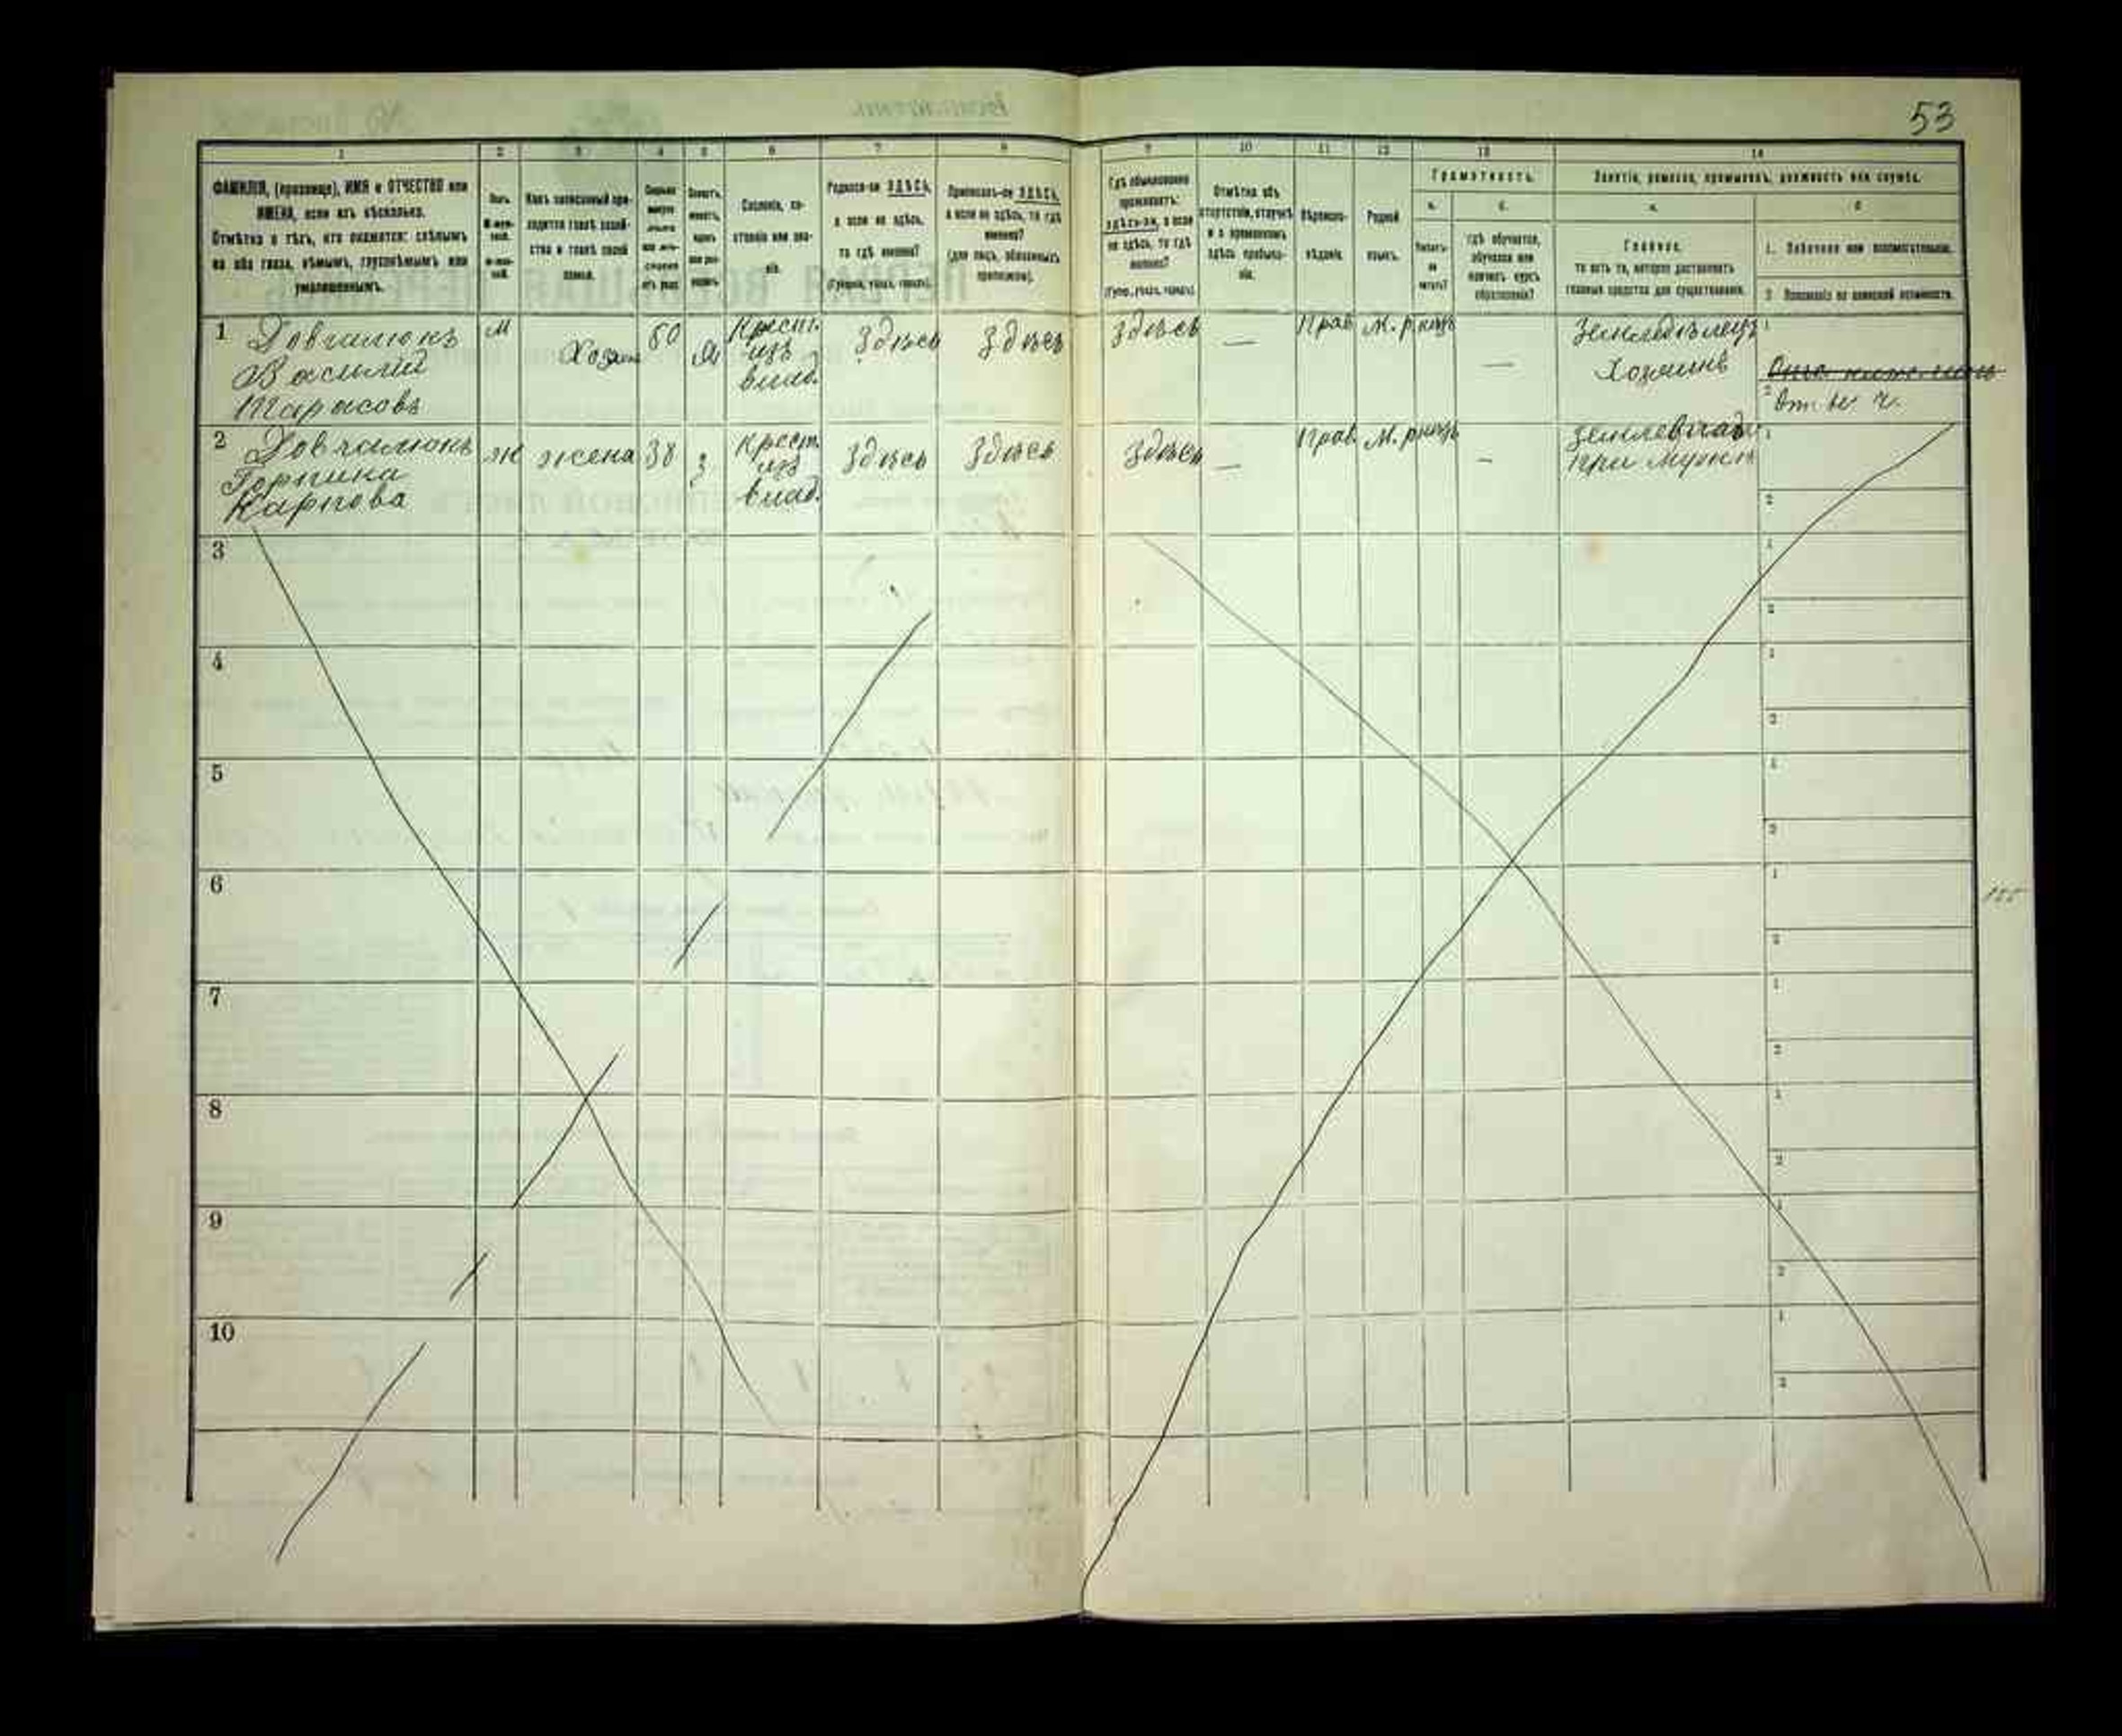 53
1 2 3 4 5 6 7 8 9 10 11 12 13 14
ФАМИЛІЯ, (прозвище), ИМЯ и ОТЧЕСТВО или
ИМЕНА, если ихъ нѣсколько.
Отмѣтка о тѣхъ, кто окажется: слѣпымъ
на оба глаза, нѣмымъ, глухонѣмымъ или
умалишеннымъ.
Полъ.
М-муж-
ской.
ж-жен-
скій.
Какъ записанный при-
ходится главѣ хозяй-
ства и главѣ своей
семьи.
Сколько
минуло
лѣтъ
или мѣ-
сяцевъ
отъ роду.
Сословіе, со-
стояніе или зва-
ніе.
Родился-ли ЗДѢСЬ,
а если не здѣсь,
то гдѣ именно?
(Губернія, уѣздъ, городъ).
Приписанъ-ли ЗДѢСЬ,
а если не здѣсь, то гдѣ
именно?
(для лицъ, обязанныхъ
припискою).
Гдѣ обыкновенно
проживаетъ:
здѣсь-ли, а если
не здѣсь, то гдѣ
именно?
(Губер., уѣздъ, городъ).
Отмѣтка объ
отсутствіи, отлучкѣ
и о временномъ
здѣсь пребыва-
ніи.
Вѣроиспо-
вѣданіе.
Родной
языкъ.
Грамотность.
а. б.
Умѣетъ-
ли
читать?
гдѣ обучается,
обучался или
кончилъ курсъ
образованія?
Занятіе, ремесло, промыселъ, должность или служба.
а. б.
Главное,
то есть то, которое доставляетъ
главныя средства для существованія.
1. Побочное или вспомогательное.
2. Положеніе по воинской повинности.
1 Довгалюкъ
Василій
Тарасовъ
м Хозяин 60 Крест.
изъ
влад.
Здѣсь Здѣсь Здѣсь — Прав. М. р. —
Земледѣлецъ
Хозяинъ
1
2
2 Довгалюкъ
Горпина
Карпова
ж жена 38 з крест.
изъ
влад.
Здѣсь Здѣсь Здѣсь — Прав. М. р. —
при мужѣ
1
2
3
1
2
4
1
2
5
1
2
6
1
2
7
1
2
8
1
2
9
1
2
10
1
2